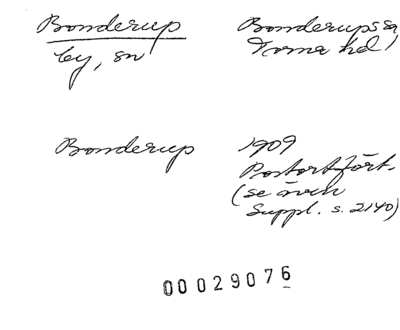 Bonderup
by, sn
Bonderups sn
Torna hd
Bonderup
1909
Postortfört.
(se även
Suppl. s. 2140)
00029076